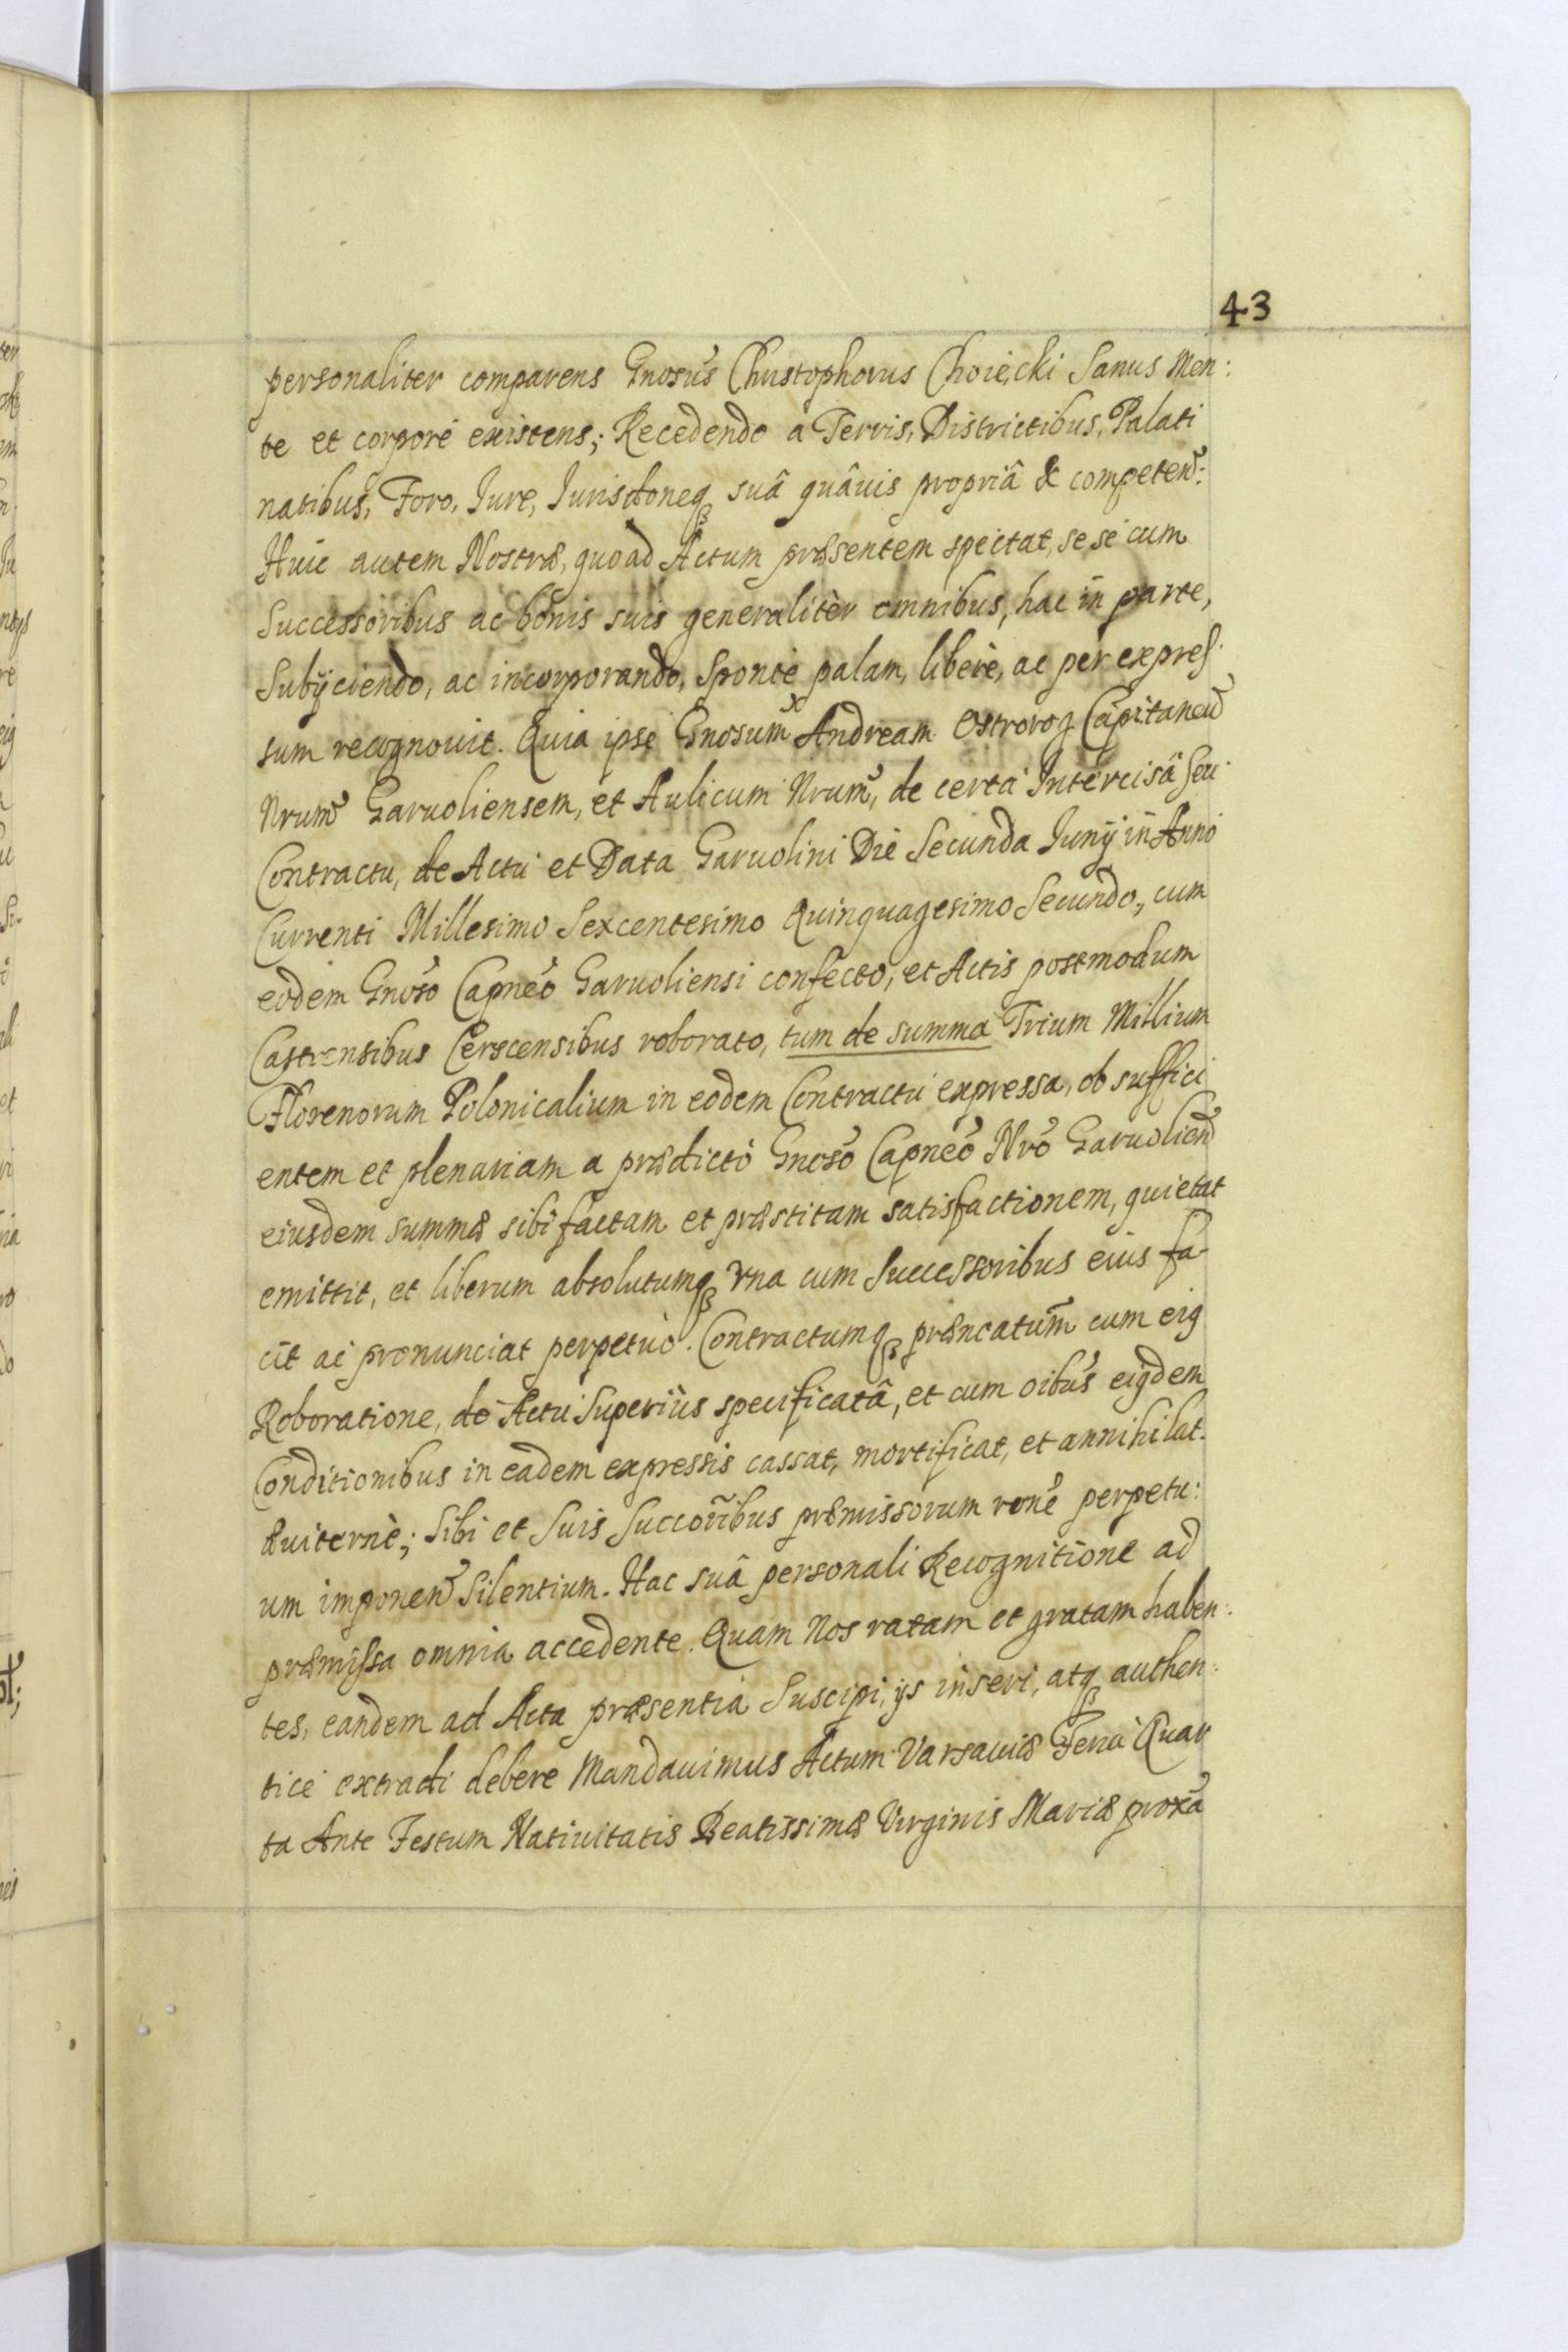 43
personaliter comparens Gnosus Christophorus Choiecki Sanus Men:
te et corpore existens; Recedendo a Terris, Districtibus, Palati
natibus, Foro, Iure, Iurisdoneq suâ quâuis propriâ & competen:
Huic autem Nostræ, quoad Actum præsentem spectat, se se cum
Successoribus ac bonis suis generalitèr omnibus, hac in parte,
Subijciendo, ac incorporando, Sponte palam, libere, ac per expres
sum recognouit. Quia ipse Gnosum Andream Ostrorog Capitaneũ
Nrum Garuoliensem, et Aulicum Nrum, de certa Intercisâ Seu
Contractu, de Actu et Data Garuolini Die Secunda Iunij in Anno
Currenti Millesimo Sexcentesimo Quinquagesimo Secundo, cum
eodem Gnoso Capneo Garuoliensi confecto, et Actis postmodum
Castrensibus Cerscensibus roborato, tum de summa Trium Millium
Florenorum Polonicalium in eodem Contractu expressa, ob suffici
entem et plenariam a prædicto Gnoso Capneo Nro Garuolien
eiusdem summæ sibi factam et præstitam satisfactionem, quietat
emittit, et liberum absolutumq vna cum Successoribus eius fa-
cit ac pronunciat perpetuo. Contractumq præncatum cum eig
Roboratione, de Actu Superiùs specificatâ, et cum oibus eigdem
Conditionibus in eadem expressis cassat, mortificat, et annihilat.
æuiternè; Sibi et Suis Succoribus præmissorum rone perpetu:
um imponen Silentium. Hac suâ personali Recognitione ad
præmissa omnia accedente. Quam Nos ratam et gratam haben:
tes, eandem ad Acta præsentia Suscipi, ijs inseri, atq authen:
tice extradi debere Mandauimus Actum Varsauiæ Feria Quar
ta Ante Festum Natiuitatis Beatissimæ Virginis Mariæ proxa